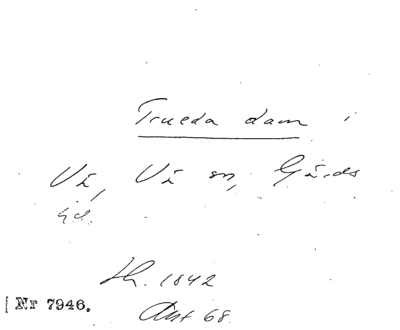 Trueda dam i
Vä, Vä sn, Gärds
hd.
Lh. 1842
Akt 68.
Nr 7946.